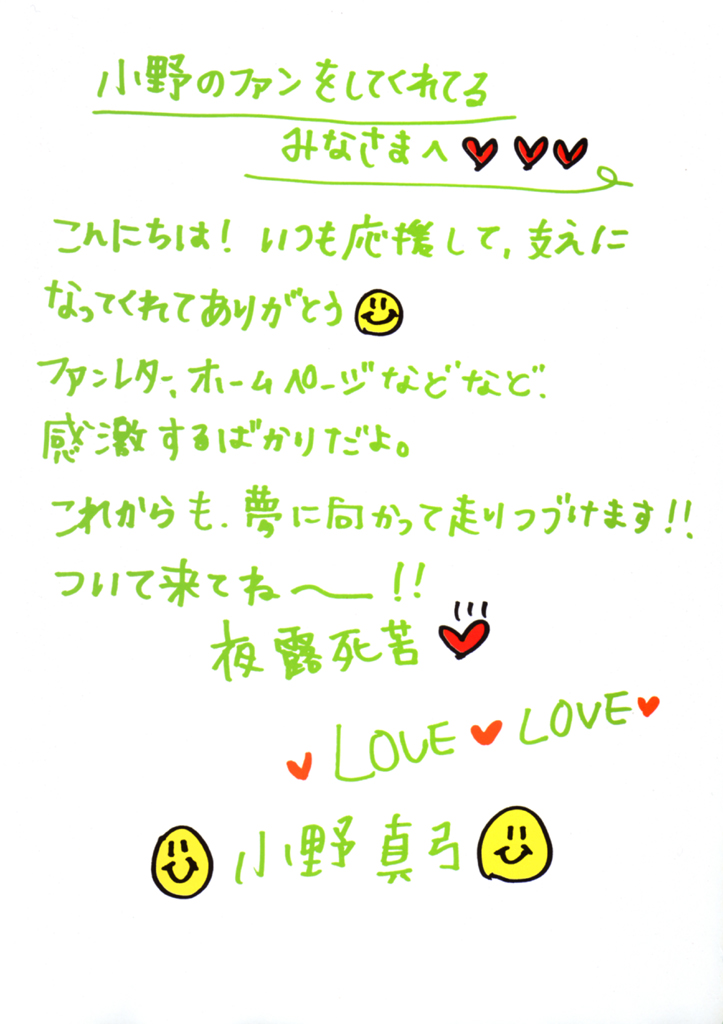 小野のファンをしてくれてる
みなさまへ
こんにちは！いつも応援して、支えに
なってくれてありがとう
ファンレター、ホームページなどなど、
感激するばかりだよ。
これからも、夢に向かって走りつづけます!!
ついて来てね〜!!
夜露死苦
LOVE LOVE
小野真弓